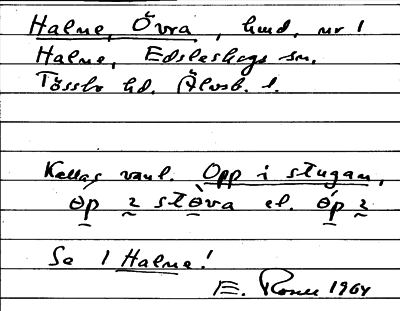 Halne, Övra, hmd, nr 1
Halne, Edsleskogs sn.
Tössbo hd. Älvsb. l.
Kallas vanl. Opp i stugan,
öp 2 støva el. öp 2
Se 1 Halne!
E. Rosen 1964